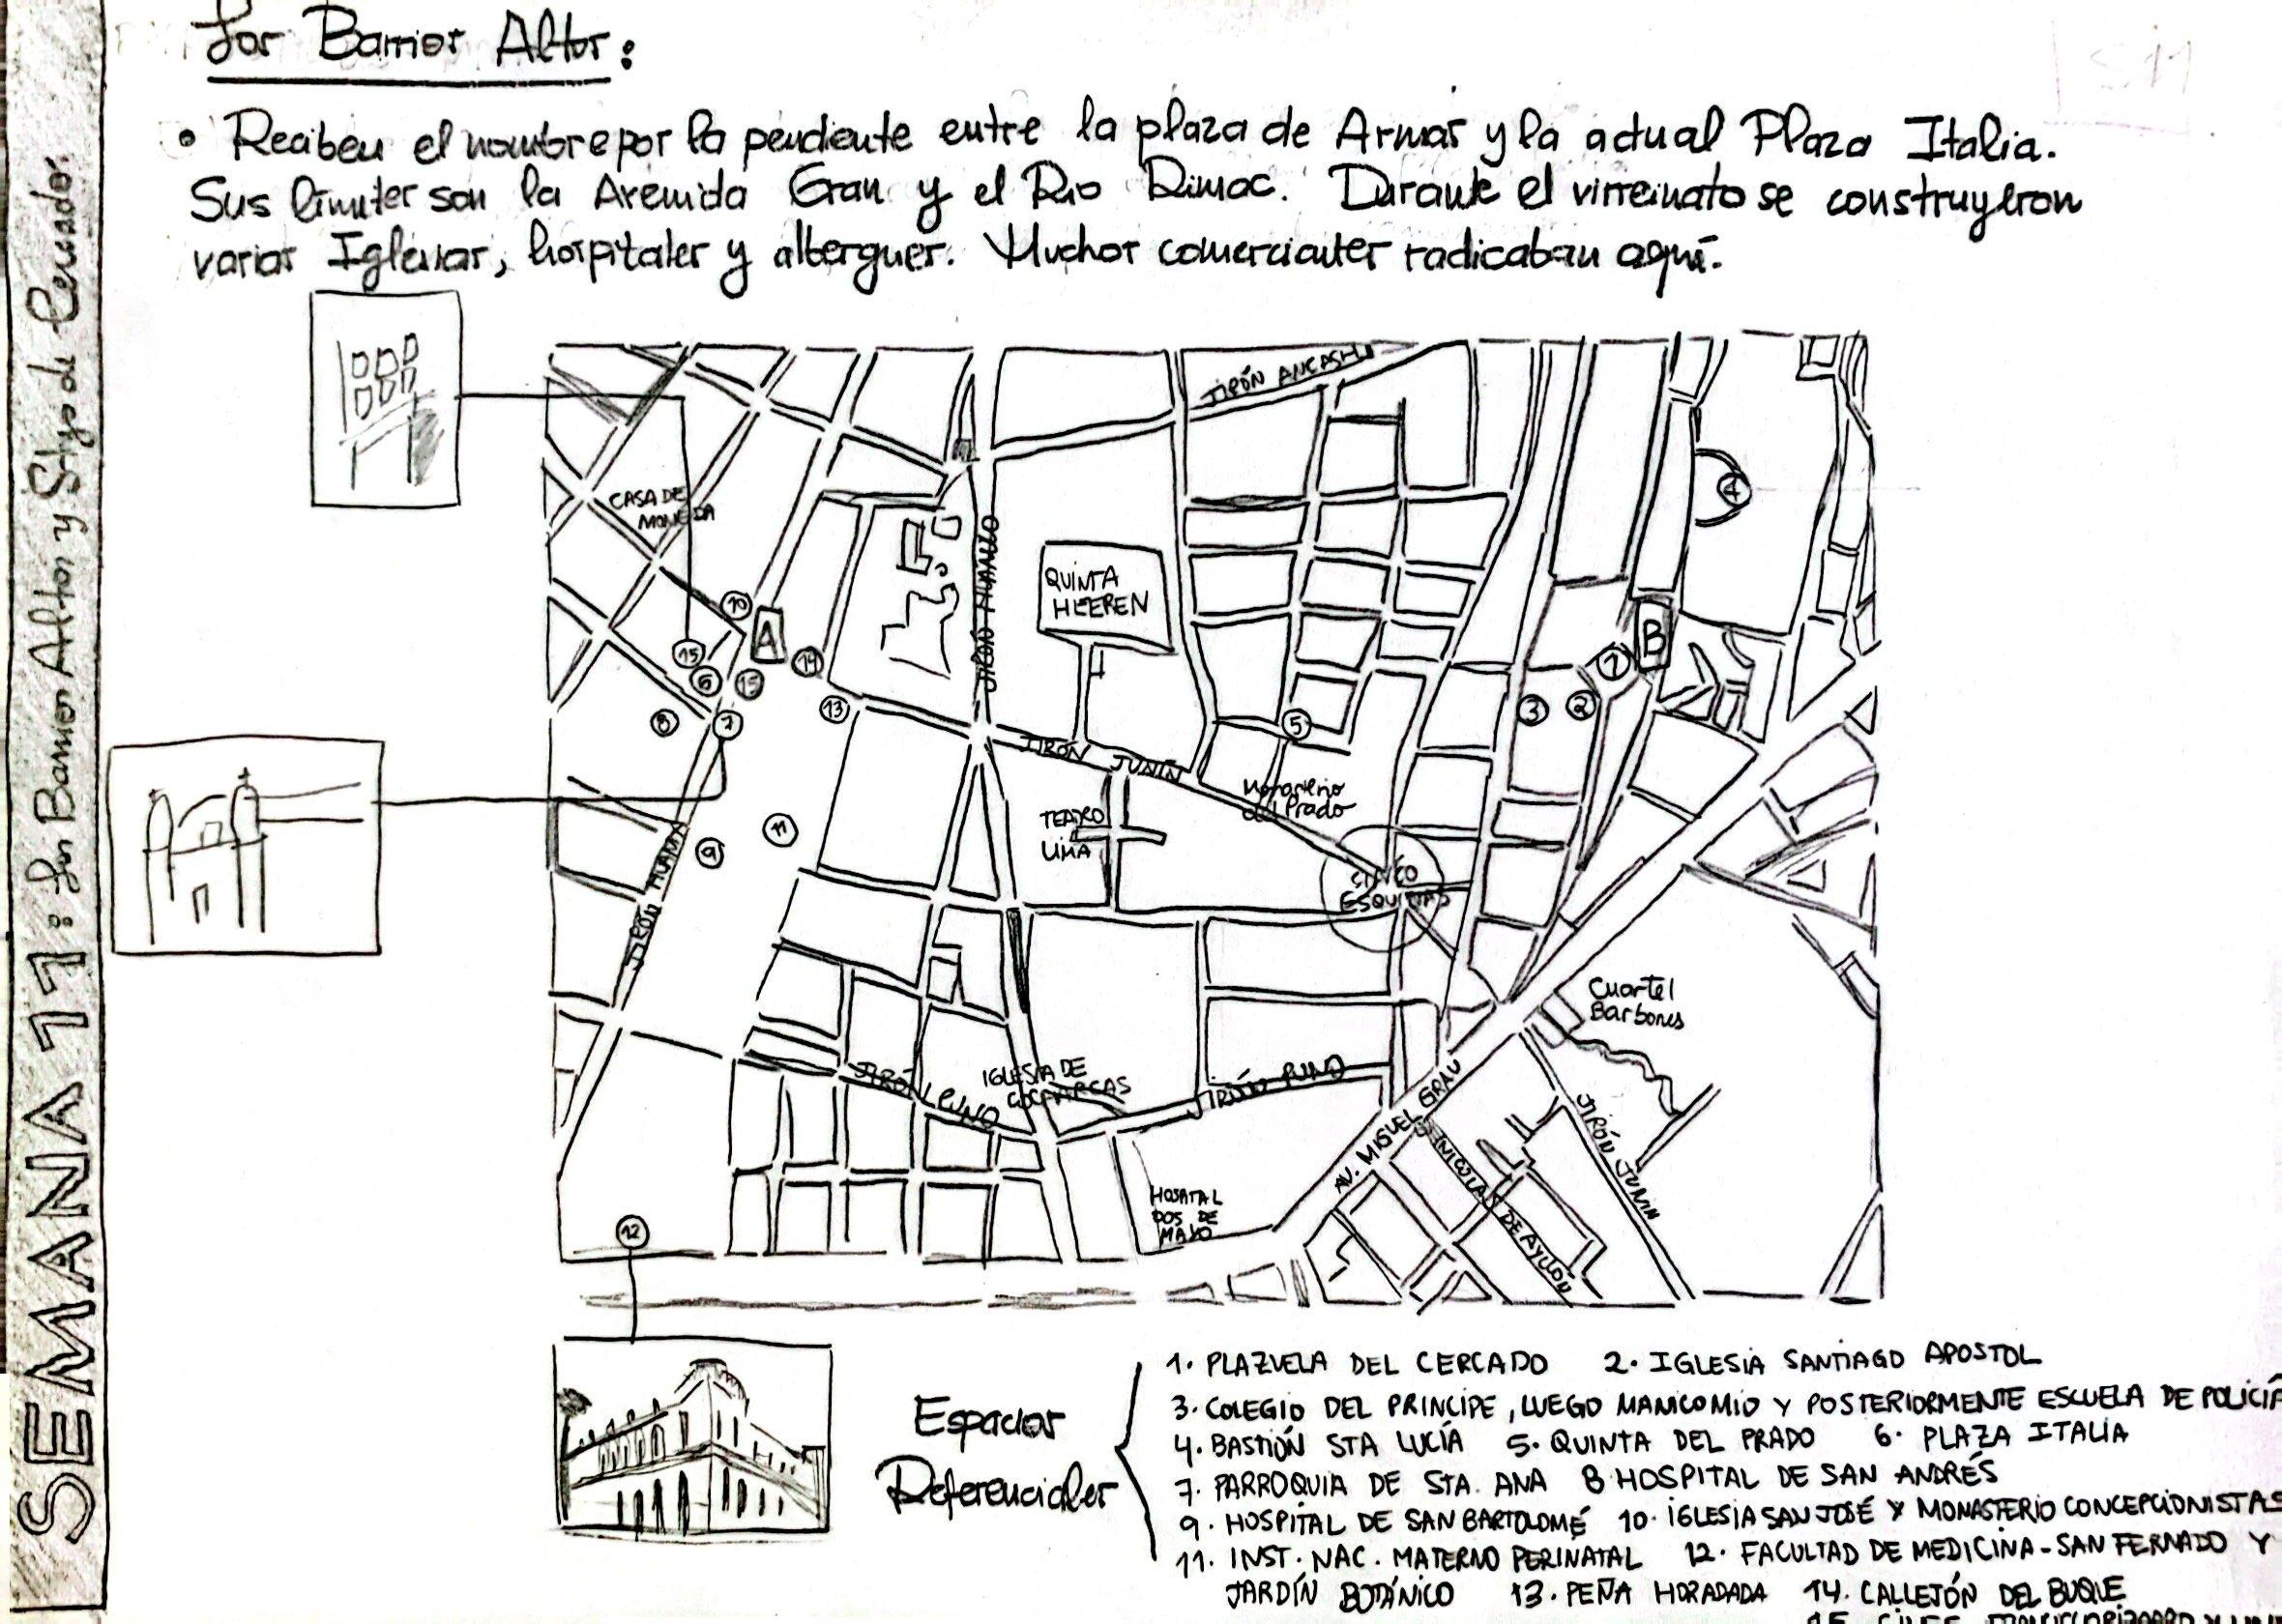 Los Barrios Altos:
• Reciben el nombre por la pendiente entre la plaza de Armas y la actual Plaza Italia.
Sus límites son la Avenida Grau y el Rio Rimac. Durante el virreinato se construyeron
varias Iglesias, hospitales y albergues. Muchos comerciantes radicaban aquí.
SEMANA 11: Los Barrios Altos y Stgo de Cercado:
JIRÓN ANCASH
CASA DE
MONEDA
JIRÓN HUANUCO
QUINTA
HEEREN
4
10
A
15
14
6
15
13
8
7
5
3
2
1
B
JIRÓN JUNÍN
Monasterio
del Prado
TEATRO
LIMA
11
9
JIRÓN HUANTA
CINCO
ESQUINAS
Cuartel
Barbones
JIRÓN PUNO
IGLESIA DE
COCHARCAS
JIRÓN PUNO
AV. MIGUEL GRAU
NICOLAS DE AYLLÓN
JIRÓN JUNIN
HOSPITAL
DOS DE
MAYO
12
Espacios
Referenciales
1. PLAZUELA DEL CERCADO 2. IGLESIA SANTIAGO APOSTOL
3. COLEGIO DEL PRINCIPE, LUEGO MANICOMIO Y POSTERIORMENTE ESCUELA DE POLICÍA
4. BASTIÓN STA LUCÍA 5. QUINTA DEL PRADO 6. PLAZA ITALIA
7. PARROQUIA DE STA. ANA 8 HOSPITAL DE SAN ANDRÉS
9. HOSPITAL DE SAN BARTOLOMÉ 10. IGLESIA SAN JOSÉ Y MONASTERIO CONCEPCIONISTAS
11. INST. NAC. MATERNO PERINATAL 12. FACULTAD DE MEDICINA - SAN FERNADO Y
JARDÍN BOTÁNICO 13. PEÑA HORADADA 14. CALLEJÓN DEL BUQUE
15.